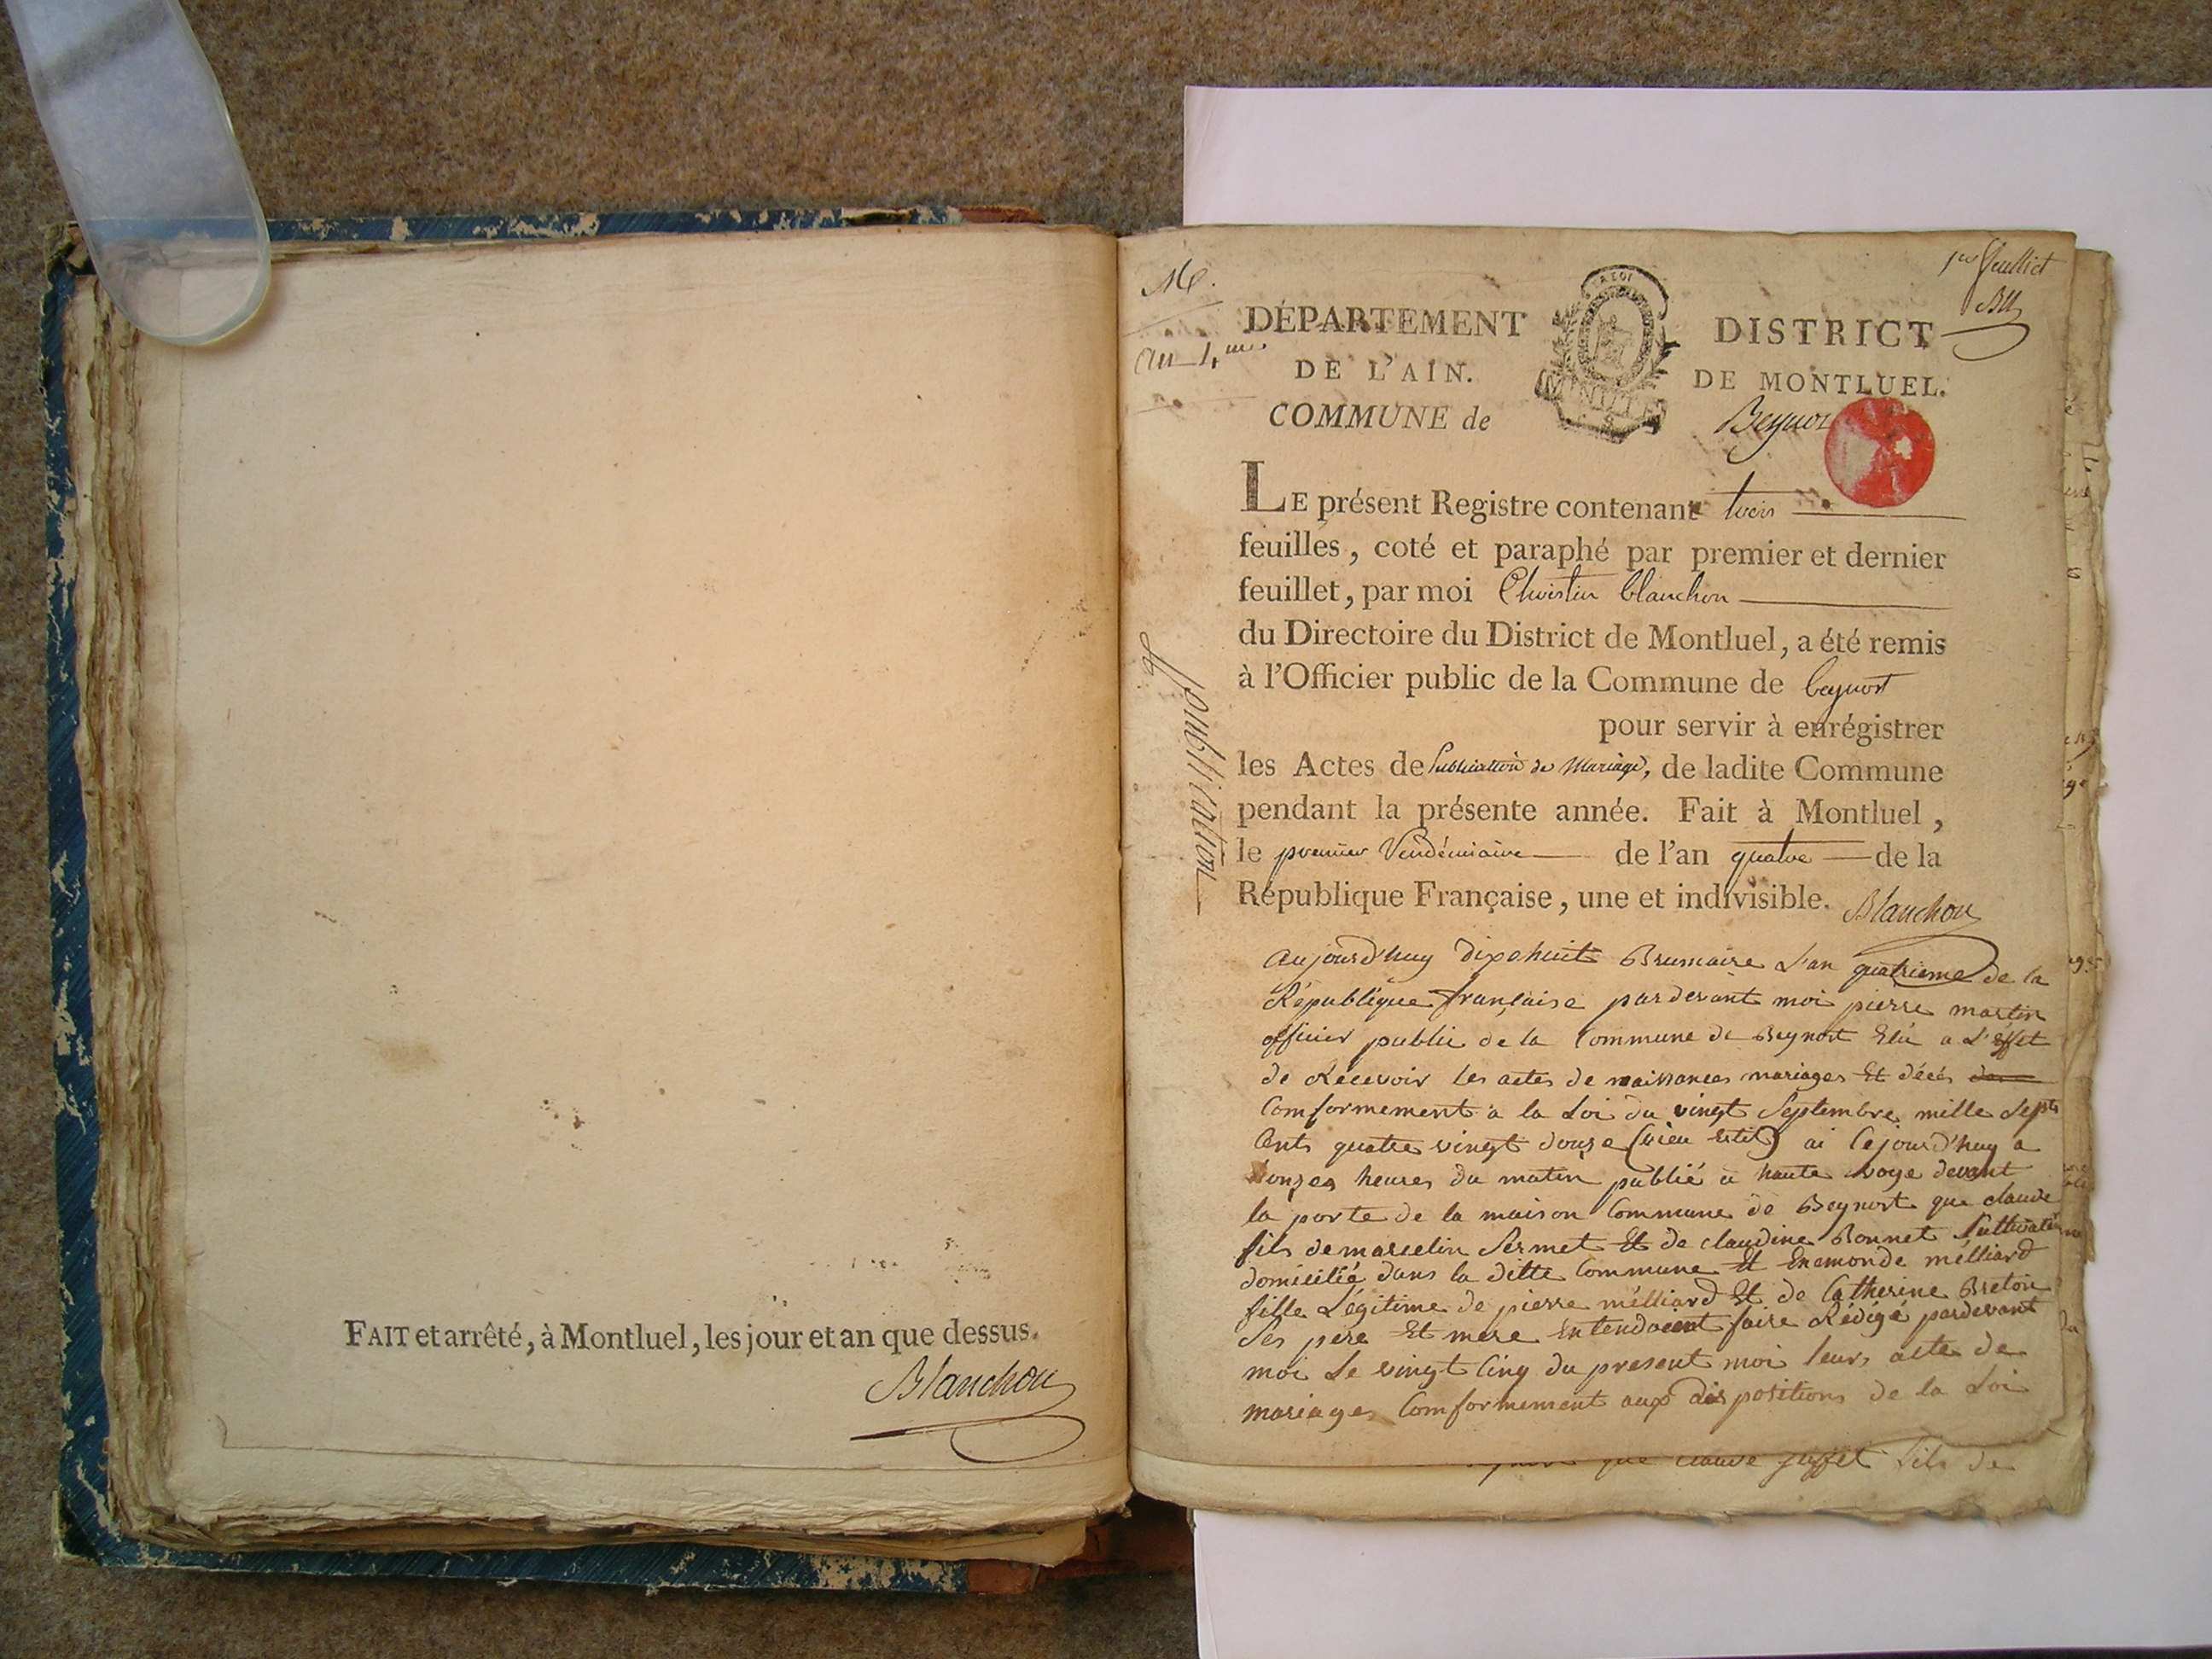 FAIT et arrêté, à Montluel, les jour et an que dessus.
Blanchon
M.
an 4me
1er feuillet
Bll
DÉPARTEMENT
DE L'AIN.
COMMUNE de
LA LOI
DISTRICT
DE MONTLUEL.
Beynost
LE présent Registre contenant trois
feuilles, coté et paraphé par premier et dernier
feuillet, par moi Christin blanchon
du Directoire du District de Montluel, a été remis
à l'Officier public de la Commune de beynost
pour servir à enrégistrer
les Actes de Publication de Mariage, de ladite Commune
pendant la présente année. Fait à Montluel,
le premier Vendémiaire de l'an quatre de la
République Française, une et indivisible. Blanchon
publication
aujourd'huy dixehuit Brumaire L'an quatrieme de la
République française pardevant moi pierre martin
officier public de la Commune de Beynost Elü a L'éffet
de Récevoir les actes de naissances mariages Et décés
Comformement a la Loi du vingt Septembre mille Sept
Cents quatre vingt douse (vieu stil) ai Cejourd'huy a
onzes heures du matin publié a haute voye devant
la porte de la maison Commune de Beynost que claude
fils de marcelin Sermet Et de claudine Bonnet Cultivateur
domicilié dans la ditte Commune Et Enemonde mélliard
fille Légitime de pierre mélliard Et de Catherine Breton
Ses pere Et mere Entendoient faire Rédigé pardevant
moi Le vingt Cinq du present moi leurs acte de
mariages Comformement aux dispositions de la Loi
que claude juffet fils de